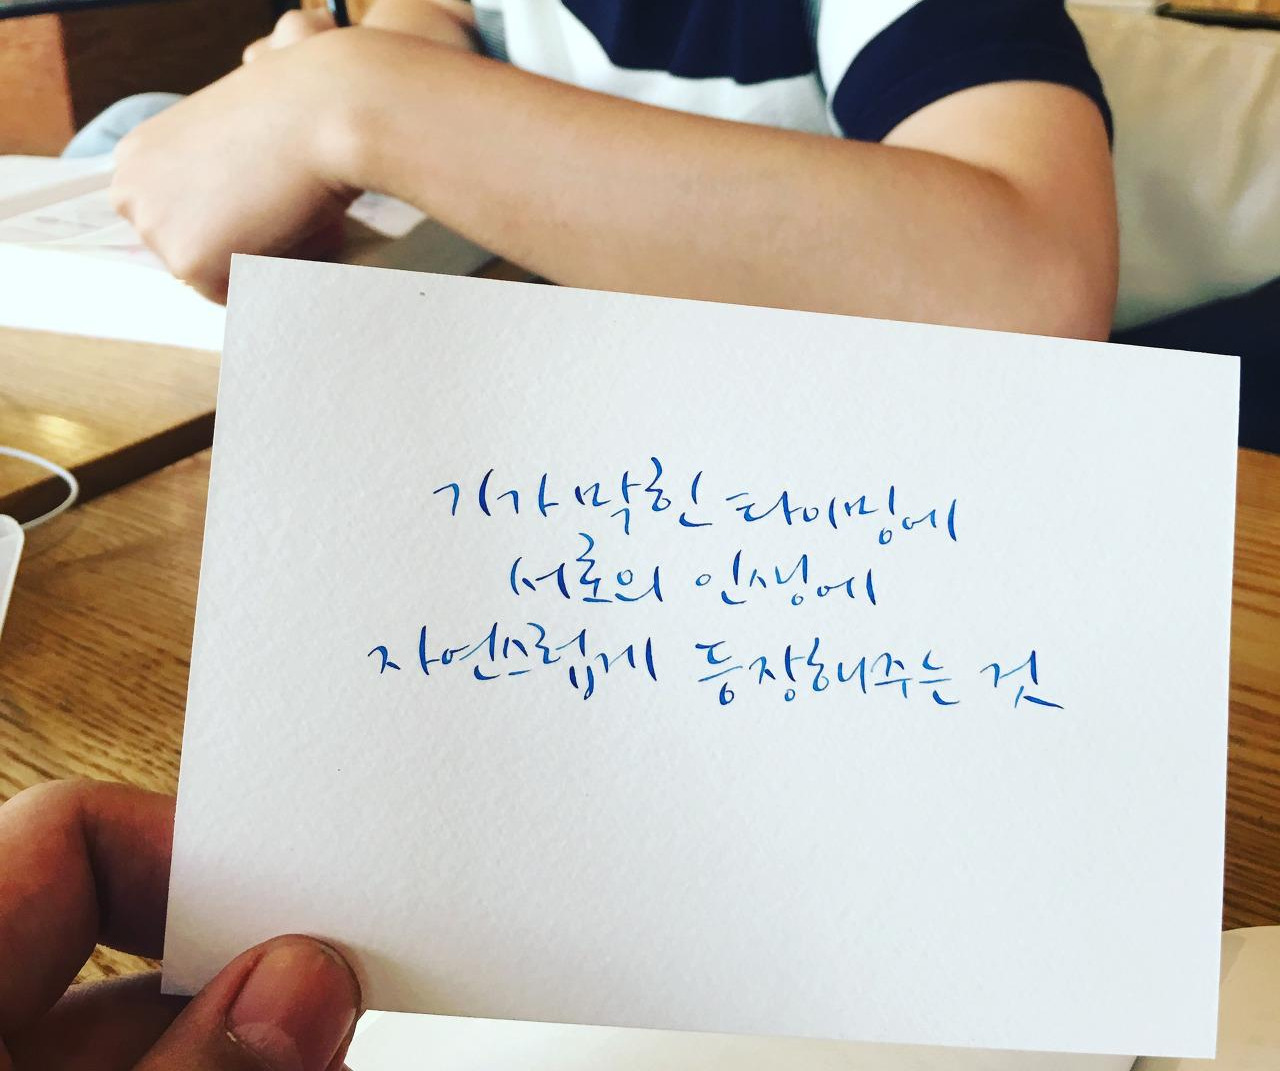 기가 막힌 타이밍에
서로의 인생에
자연스럽게 등장해주는 것